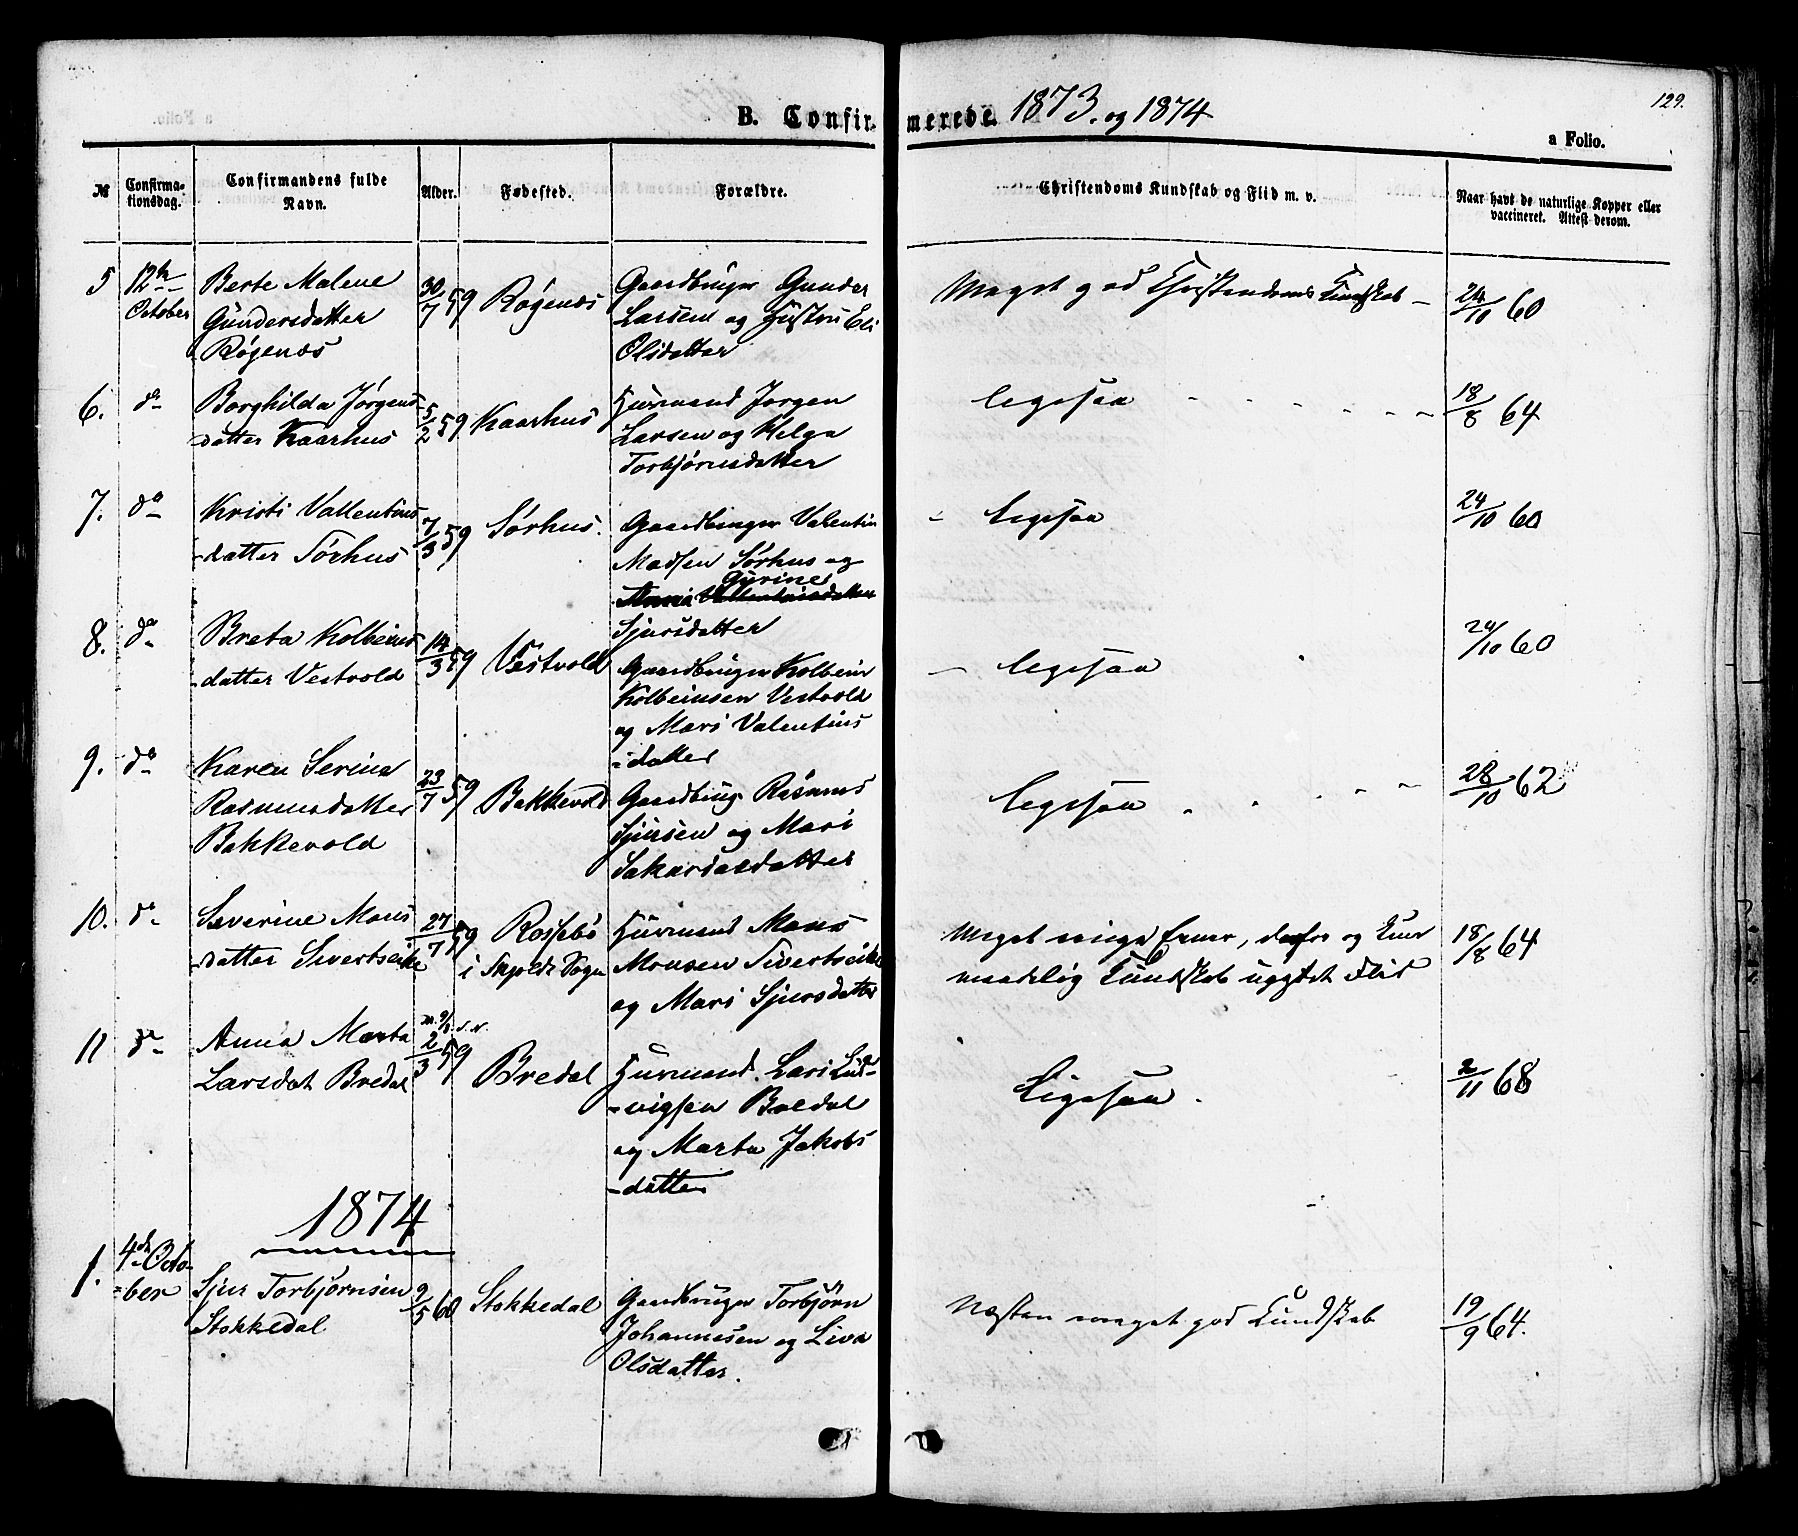 129.
B. Confirmerede. 1873. og 1874
a Folio.
№
Confirmationsdag.
Confirmandens fulde Navn.
Alder.
Fødested.
Forældre.
Christendoms Kundskab og Flid m. v.
Naar havt de naturlige Kopper eller vaccineret. Attest derom.
5 12te October
Berte Malene
Gundersdatter
Røgenæs
30/7 59 Røgenæs
Gaardbruger Gunder
Larsen og Hustru Eli
Olsdatter
Meget god Christendoms Kundskab –
24/10 60
6. do
Borghilda Jørgens
datter Kaarhus
5/2 59 Kaarhus
Huusmand Jørgen
Larsen og Helga
Torbjørnsdatter
ligesaa
18/8 64
7. do
Kristi Vallentins
datter Sørhus
7/3 59 Sørhus.
Gaardbruger Valentin
Madsen Sørhus og
Gurine
Anna Vallentinsdatter
Sjursdatter
ligesaa
24/10 60
8. do
Breta Kolbeins
datter Vestvold
14/3 59 Vestvold
Gaardbruger Kolbein
Kolbeinsen Vestvold
og Mari Valentins
datter
ligesaa
24/10 60
9. do
Karen Serina
Rasmusdatter
Bakkevold
23/7 59 Bakkevold
Gaardbrug. Rasmus
Sjursen og Mari
Sakariasdatter
ligesaa
28/10 62
10. do
Severine Mons
datter Sivertseike
27/7 59 Rossebø
i Skjolds Sogn
Huusmand Mons
Monsen Sivertseike
og Mari Sjursdatter
Meget ringe Evner, derfor og kun
maadelig Kundskab uagtet Flid
18/8 64
11 do
Anna Marta
Larsdat Bredal
2/3 59 Bredal
Huusmand. Lars Lud-
vigsen Bredal
og Marta Jakobs
datter
Ligesaa.
2/11 68
1874
1. 4de Octo-
ber
Sjur Torbjørnsen
Stakkedal
9/5 60 Stakkedal
Gaardbruger Torbjørn
Johannesen og Liva
Olsdatter.
Næsten meget god Kundskab
19/9 64.